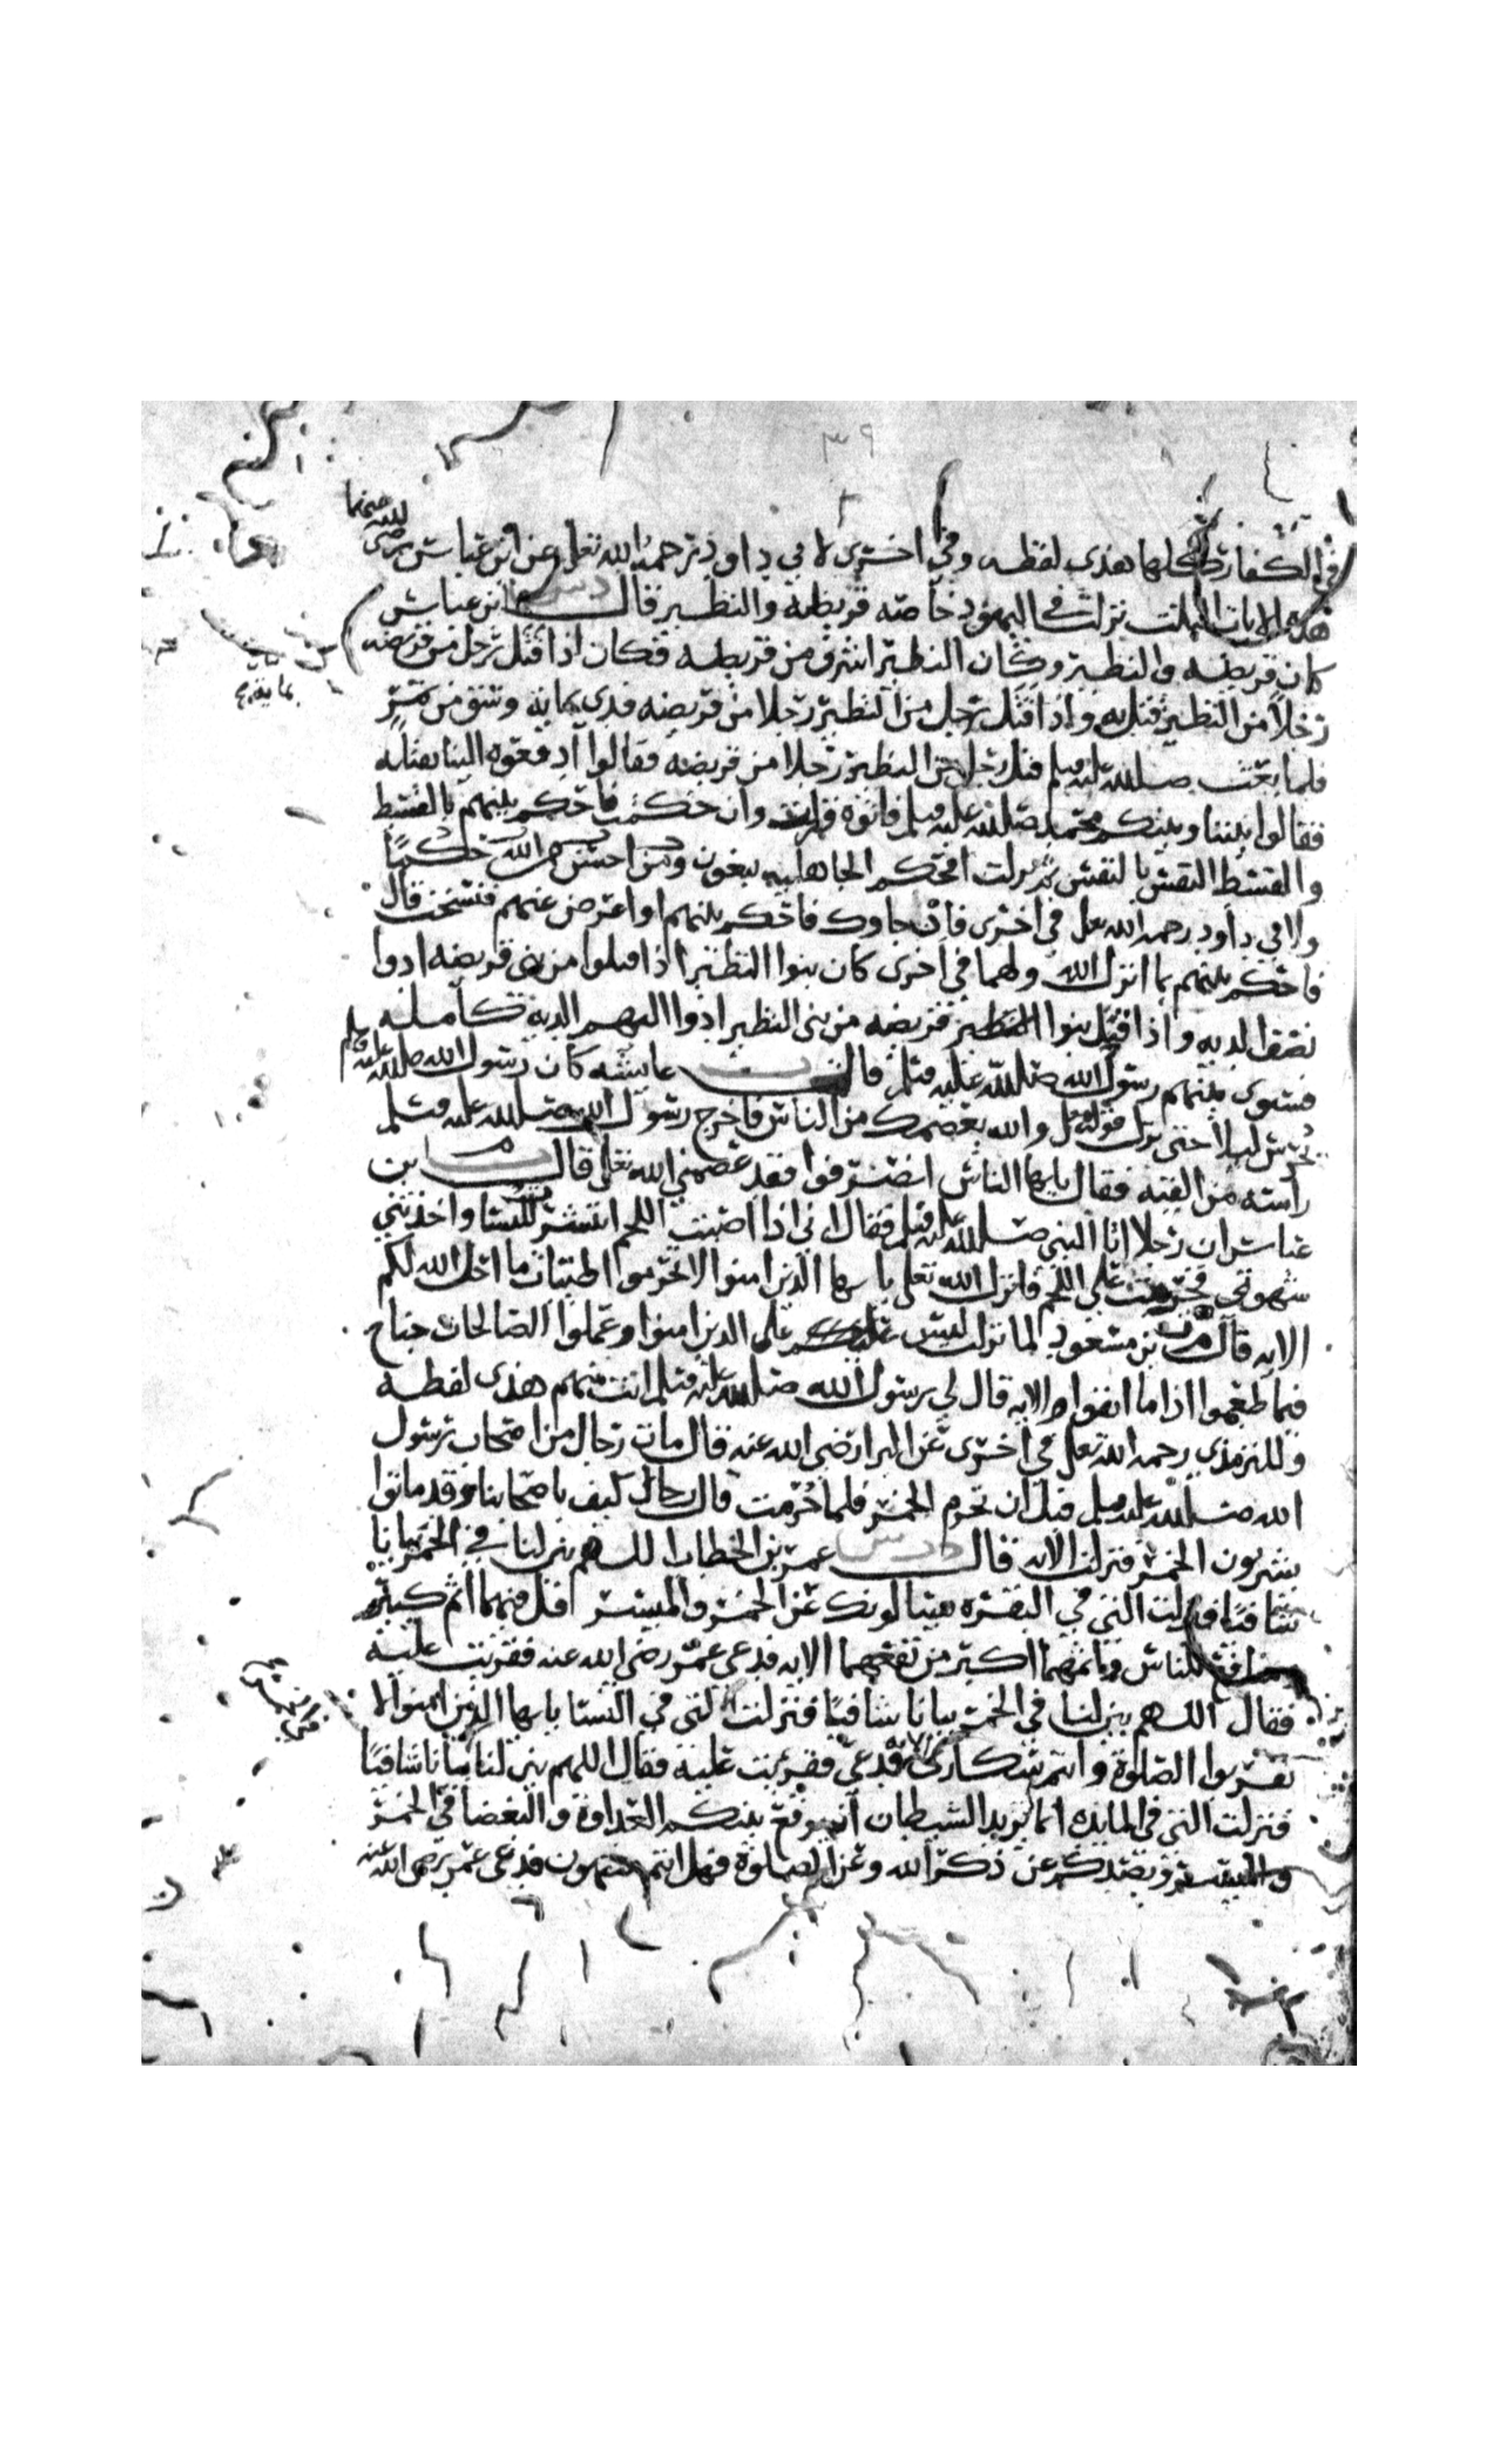 ٣٩
في الكفار كلها هذى لفظه وفي اخرى لابي داود رحمه الله تعلى عن ابن عباس رضي الله عنهما
هذه الايات الثلث نزلت في اليهود خاصه قريظة والنظير قال دس ابن عباس
كان قريظه والنظير وكان النظير اشرف من قريظه فكان اذا قتل رجل من قريضه
رجلا من النظير قتل به واذا قتل رجل من النظير رجلا من قريضه فدى بمايه وسق من تمر
فلما بعث صلى الله عليه وسلم قتل رجل من النظير رجلا من قريضه فقالوا ادفعوه الينا نقتله
فقالوا بيننا وبينكم محمد صلى الله عليه وسلم فاتوه فنزلت وان حكمت فاحكم بينهم بالقسط
والقسط النفس بالنفس ثم نزلت افحكم الجاهليه يبغون ومن احسن من الله حكما
ولابي داود رحمه الله تعلى في اخرى فان جاوك فاحكم بينهم او اعرض عنهم فنسخت قال
فاحكم بينهم بما انزل الله ولهما في اخرى كان بنوا النظير اذا قتلوا من بني قريضه ادوا
نصف الديه واذا قتل بنوا قريضه من بني النظير ادوا اليهم الديه كامله
فسوى بينهم رسول الله صلى الله عليه وسلم قالت ت عايشه كان رسول الله صلى الله عليه وسلم
يحرس ليلا حتى نزل قوله تعلى والله يعصمك من الناس فاخرج رسول الله صلى الله عليه وسلم
راسه من القبه فقال يايها الناس انصرفوا فقد عصمني الله تعلى قال ت بن
عباس ان رجلا اتا النبي صلى الله عليه وسلم فقال اني اذا اصبت اللحم انتشرت للنسا واخذتني
شهوتي فحرمت علي اللحم فانزل الله تعلى يايها الذين امنوا لا تحرموا طيبات ما احل الله لكم
الايه قال م ت بن مسعود لما نزلت ليس على الذين امنوا وعملوا الصالحات جناح
فيما طعموا اذا ما اتقوا الايه قال لي رسول الله صلى الله عليه وسلم انت منهم هذى لفظه
وللترمذي رحمه الله تعلى في اخرى عن البرا رضي الله عنه قال مات رجال من اصحاب رسول
الله صلى الله عليه وسلم قبل ان تحرم الخمر فلما حرمت قال رجال كيف باصحابنا وقد ماتوا
يشربون الخمر فنزلت الايه قال د ت س عمر بن الخطاب اللهم بين لنا في الخمر بيانا
شافيا فنزلت التي في البقره يسالونك عن الخمر والميسر قل فيهما اثم كبير
ومنافع للناس واثمهما اكبر من نفعهما الايه فدعى عمر رضي الله عنه فقريت عليه
فقال اللهم بين لنا في الخمر بيانا شافيا فنزلت التي في النسا يايها الذين امنوا لا
تقربوا الصلوة وانتم سكارى الايه فدعي فقريت عليه فقال اللهم بين لنا بيانا شافيا
فنزلت التي في المايده انما يريد الشيطان ان يوقع بينكم العداوة والبغضا في الخمر
والميسر ويصدكم عن ذكر الله وعن الصلوة فهل انتم منتهون فدعى عمر رضي الله عنه